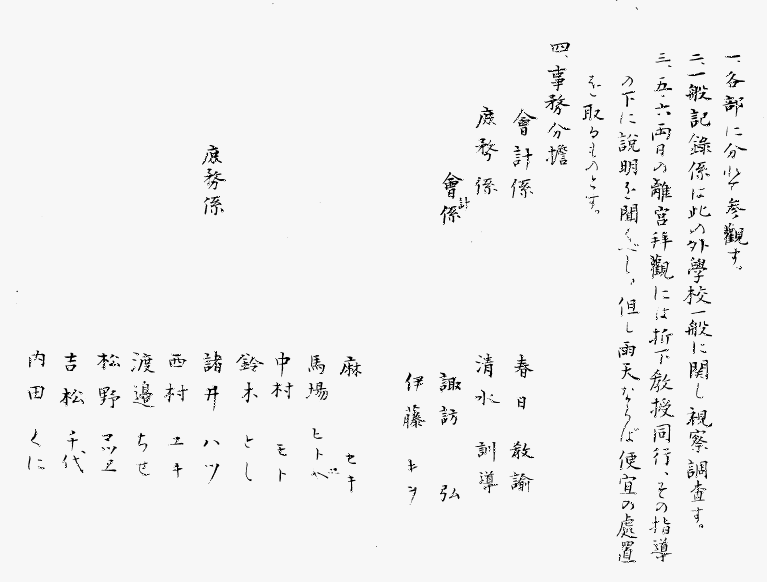 一、各部に分れて參觀す。
二、一般記錄係は此の外學校一般に関し視察調査す。
三、五・六両日の離宮拜觀には折下教授同行、その指導
の下に説明を聞くべし、但し雨天ならば便宜の處置
を取るものとす。
四、事務分擔
會計係 春日教諭
庶務係 清水訓導
會計係 諏訪 弘
伊藤 キヲ
麻 セキ
馬場 ヒトヘ
中村 モト
鈴木 とし
庶務係 諸井 ハツ
西村 ユキ
渡邉 ちせ
松野 マツヱ
吉松 千代
内田 くに